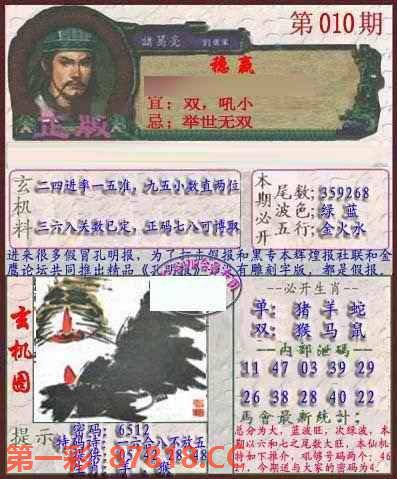 第010期
諸葛亮
稳赢
宜：双，吼小
忌：举世无双
正版
玄机料
二四进率一五准，九五小数直两位
三六八关数已定，正码七八可博取
本期必开
尾数：359268
波色：绿 蓝
五行：金火水
进来很多假冒孔明报，为了
假报和黑专本辉煌报社联和金
鹰论坛共同推出精品《孔明报》
有雕刻字版，都是假报
玄机图
必开生肖
单：猪 羊 蛇
双：猴 马 鼠
内部泄码
11 47 03 39 29
26 38 28 40 22
馬會最新統計：
总分为大，蓝波旺，次绿波，本
期以六和七之尾数大旺，本仙机
特如下推介，吼够号码两个：46
27，今期送与大家的密码为4.
提示
密码：6512
特码诗：一六合八不放五
27 42 28 48
猴
第一彩
87818.CC